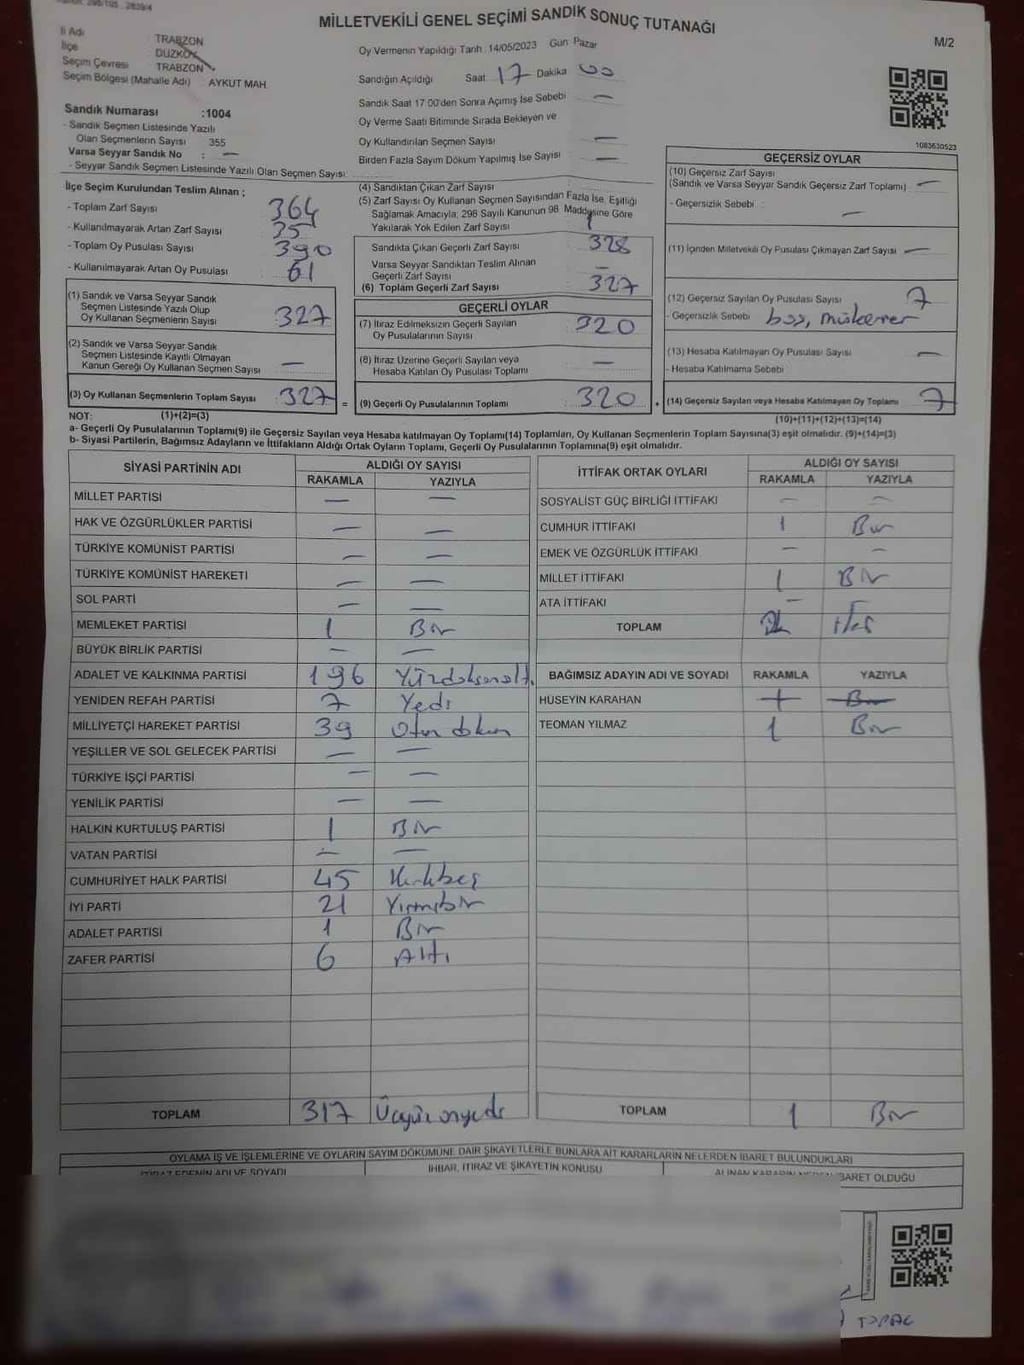 MİLLETVEKİLİ GENEL SEÇİMİ SANDIK SONUÇ TUTANAĞI
M/2
İl Adı TRABZON
İlçe DÜZKÖY
Seçim Çevresi TRABZON
Seçim Bölgesi (Mahalle Adı) AYKUT MAH
Sandık Numarası :1004
- Sandık Seçmen Listesinde Yazılı
Olan Seçmenlerin Sayısı 355
Varsa Seyyar Sandık No : —
- Seyyar Sandık Seçmen Listesinde Yazılı Olan Seçmen Sayısı:
Oy Vermenin Yapıldığı Tarih :14/05/2023 Gün: Pazar
Sandığın Açıldığı Saat 17 Dakika 00
Sandık Saat 17:00'den Sonra Açımış İse Sebebi —
Oy Verme Saati Bitiminde Sırada Bekleyen ve
Oy Kullandırılan Seçmen Sayısı —
Birden Fazla Sayım Döküm Yapılmış İse Sayısı —
1083630523
İlçe Seçim Kurulundan Teslim Alınan ;
- Toplam Zarf Sayısı 364
- Kullanılmayarak Artan Zarf Sayısı 35
- Toplam Oy Pusulası Sayısı 390
- Kullanılmayarak Artan Oy Pusulası 61
(1) Sandık ve Varsa Seyyar Sandık
Seçmen Listesinde Yazılı Olup
Oy Kullanan Seçmenlerin Sayısı 327
(2) Sandık ve Varsa Seyyar Sandık
Seçmen Listesinde Kayıtlı Olmayan
Kanun Gereği Oy Kullanan Seçmen Sayısı —
(3) Oy Kullanan Seçmenlerin Toplam Sayısı 327 =
(4) Sandıktan Çıkan Zarf Sayısı
(5) Zarf Sayısı Oy Kullanan Seçmen Sayısından Fazla İse, Eşitliği
Sağlamak Amacıyla; 298 Sayılı Kanunun 98. Maddesine Göre
Yakılarak Yok Edilen Zarf Sayısı 1
Sandıkta Çıkan Geçerli Zarf Sayısı 328
Varsa Seyyar Sandıktan Teslim Alınan
Geçerli Zarf Sayısı —
(6) Toplam Geçerli Zarf Sayısı 327
GEÇERLİ OYLAR
(7) İtiraz Edilmeksizin Geçerli Sayılan
Oy Pusulalarının Sayısı 320
(8) İtiraz Üzerine Geçerli Sayılan veya
Hesaba Katılan Oy Pusulası Toplamı —
(9) Geçerli Oy Pusulalarının Toplamı 320
GEÇERSİZ OYLAR
(10) Geçersiz Zarf Sayısı
(Sandık ve Varsa Seyyar Sandık Geçersiz Zarf Toplamı) —
- Geçersizlik Sebebi : —
(11) İçinden Milletvekili Oy Pusulası Çıkmayan Zarf Sayısı —
(12) Geçersiz Sayılan Oy Pusulası Sayısı 7
- Geçersizlik Sebebi boş, mükerrer
(13) Hesaba Katılmayan Oy Pusulası Sayısı —
- Hesaba Katılmama Sebebi
(14) Geçersiz Sayılan veya Hesaba Katılmayan Oy Toplamı 7
NOT: (1)+(2)=(3) (10)+(11)+(12)+(13)=(14)
a- Geçerli Oy Pusulalarının Toplamı(9) ile Geçersiz Sayılan veya Hesaba katılmayan Oy Toplamı(14) Toplamları, Oy Kullanan Seçmenlerin Toplam Sayısına(3) eşit olmalıdır. (9)+(14)=(3)
b- Siyasi Partilerin, Bağımsız Adayların ve İttifakların Aldığı Ortak Oyların Toplamı, Geçerli Oy Pusulalarının Toplamına(9) eşit olmalıdır.
SİYASİ PARTİNİN ADI ALDIĞI OY SAYISI
RAKAMLA YAZIYLA
MİLLET PARTİSİ — —
HAK VE ÖZGÜRLÜKLER PARTİSİ — —
TÜRKİYE KOMÜNİST PARTİSİ — —
TÜRKİYE KOMÜNİST HAREKETİ — —
SOL PARTİ — —
MEMLEKET PARTİSİ 1 Bir
BÜYÜK BİRLİK PARTİSİ — —
ADALET VE KALKINMA PARTİSİ 196 Yüzdoksanaltı
YENİDEN REFAH PARTİSİ 7 Yedi
MİLLİYETÇİ HAREKET PARTİSİ 39 Otuz dokuz
YEŞİLLER VE SOL GELECEK PARTİSİ — —
TÜRKİYE İŞÇİ PARTİSİ — —
YENİLİK PARTİSİ — —
HALKIN KURTULUŞ PARTİSİ 1 Bir
VATAN PARTİSİ — —
CUMHURİYET HALK PARTİSİ 45 Kırkbeş
İYİ PARTİ 21 Yirmibir
ADALET PARTİSİ 1 Bir
ZAFER PARTİSİ 6 Altı
TOPLAM 317 Üçyüzonyedi
İTTİFAK ORTAK OYLARI ALDIĞI OY SAYISI
RAKAMLA YAZIYLA
SOSYALİST GÜÇ BİRLİĞİ İTTİFAKI — —
CUMHUR İTTİFAKI 1 Bir
EMEK VE ÖZGÜRLÜK İTTİFAKI — —
MİLLET İTTİFAKI 1 Bir
ATA İTTİFAKI — —
TOPLAM
BAĞIMSIZ ADAYIN ADI VE SOYADI RAKAMLA YAZIYLA
HÜSEYİN KARAHAN — Bir
TEOMAN YILMAZ 1 Bir
TOPLAM 1 Bir
OYLAMA İŞ VE İŞLEMLERİNE VE OYLARIN SAYIM DÖKÜMÜNE DAİR ŞİKAYETLERLE BUNLARA AİT KARARLARIN NELERDEN İBARET BULUNDUKLARI
İTİRAZ EDENİN ADI VE SOYADI İHBAR, İTİRAZ VE ŞİKAYETİN KONUSU ALINAN KARARIN NEDEN İBARET OLDUĞU